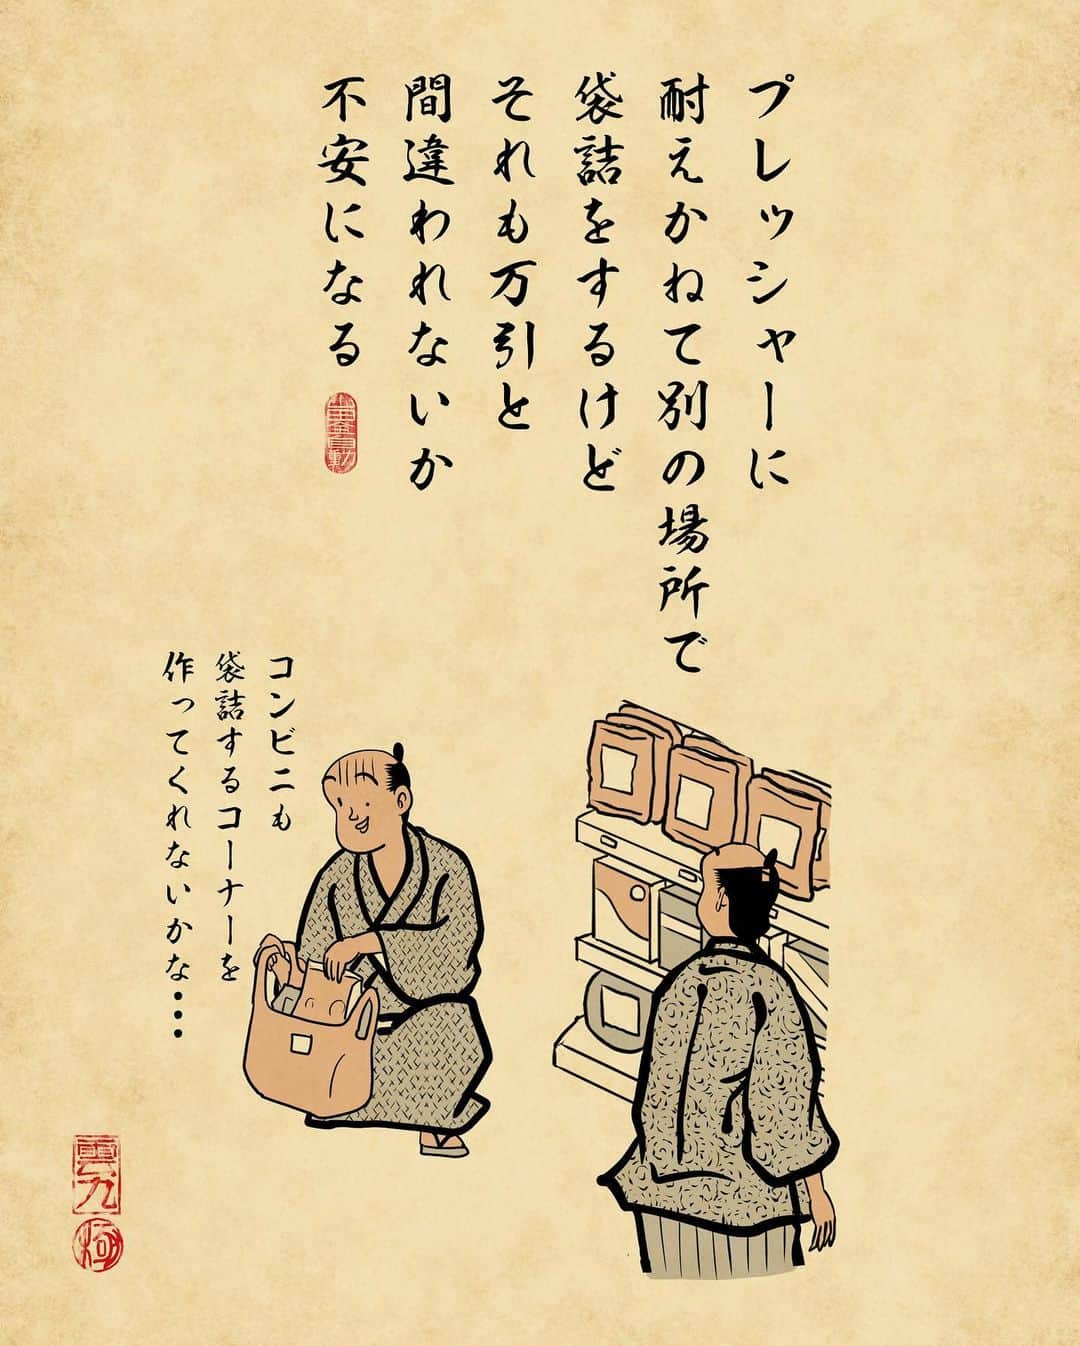 プレッシャーに
耐えかねて別の場所で
袋詰をするけど
それも万引と
間違われないか
不安になる
コンビニも
袋詰するコーナーを
作ってくれないかな・・・
雲九
極